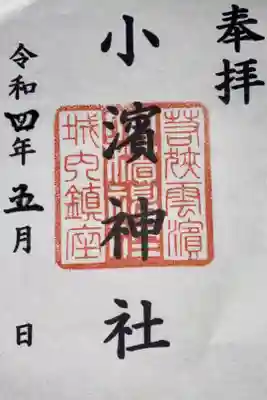 奉拝
小濱神社
令和四年五月 日
若狹雲濱
小濱神社
城内鎮座